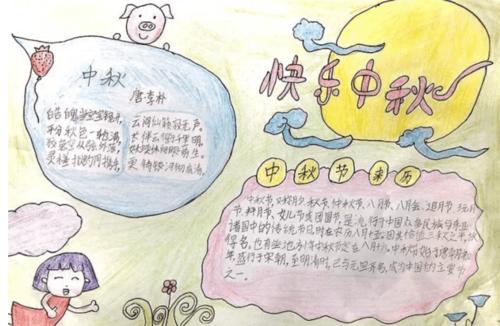 中秋
唐李朴
皓魄当空宝镜升,
云间仙籁寂无声。
秋色一轮满,
长伴云衢千里明。
狡兔空从弦外落,
妖蟆休向眼前生。
灵槎拟约同携手,
更待银河彻底清。
快乐中秋
中秋节来历
中秋节,又称月夕、秋节、仲秋节、八月节、八月会、追月节、玩月
节、拜月节、女儿节或团圆节,是流行于中国众多民族与
诸国中的传统节日,时在农历八月十五;因其恰值三秋之半,故
得名,也有些地方将中秋节定在八月十六。中秋节始于唐朝初
年,盛行于宋朝,至明清时,已与元旦齐名,成为中国的主要节
之一。